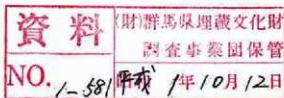 資料
(財)群馬県埋蔵文化財
調査事業団保管
NO. 1-581
平成 1年10月12日